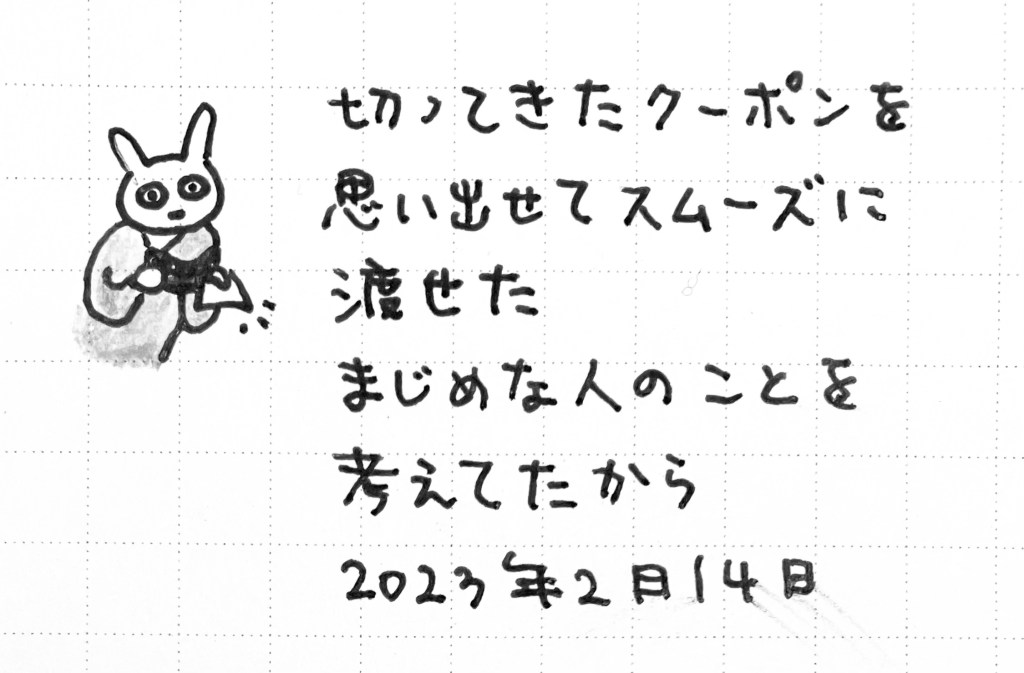 切ってきたクーポンを
思い出せてスムーズに
渡せた
まじめな人のことを
考えてたから
2023年2日14日